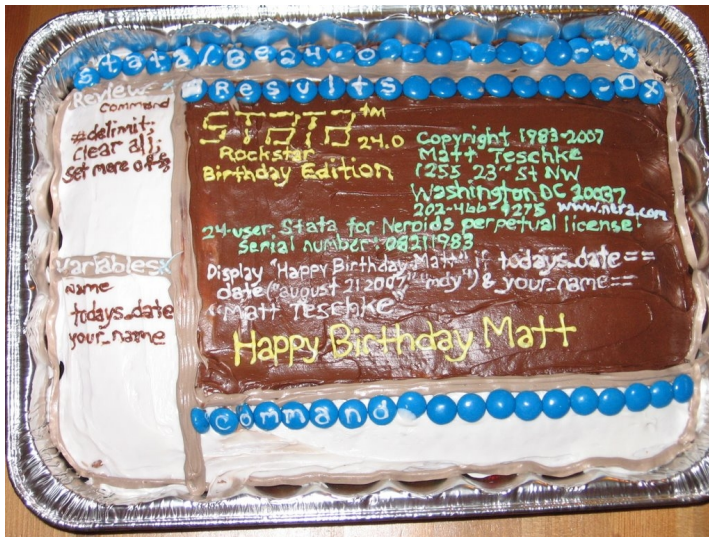 Stata/Be24.0 -x
Results -□x
Review x
Command
#delimit;
clear all;
set more off;
Variables x
Name
todays_date
your_name
STATA™ 24.0
Rockstar
Birthday Edition
Copyright 1983-2007
Matt Teschke
1255 23rd St NW
Washington, DC 20037
202-466-9275 www.nera.com
24-user Stata for Neroids perpetual license:
serial number: 08211983
Display "Happy Birthday Matt" if todays_date==
date("august 21 2007", "mdy") & your_name==
"Matt Teschke"
Happy Birthday Matt
Command